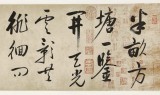 半畝方
塘一鑒
開天光
雲影共
徘徊問